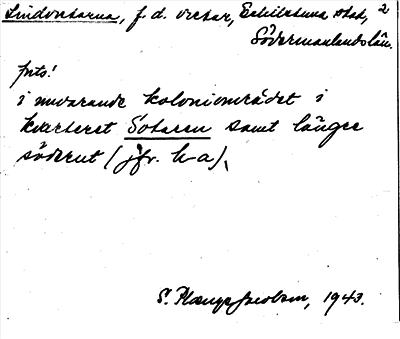 Lindvretarna, f.d. vretar, Eskilstuna stad, 2
Södermanlands län.
Prts!
i nuvarande koloniområdet i
kvarteret Sotaren samt längre
söderut (jfr. h-a).
S. Plænge Jacobson, 1943.